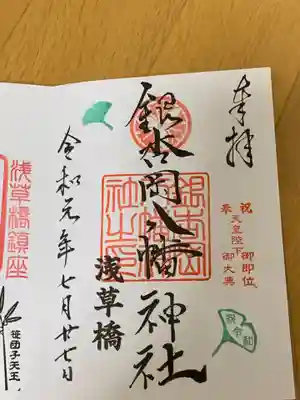 奉拝
祝
天皇陛下御即位
奉
御大典
祝令和
銀杏岡八幡神社
銀杏岡
八幡神
社之印
浅草橋
令和元年七月廿七日
浅草橋鎮座
笹団子天王